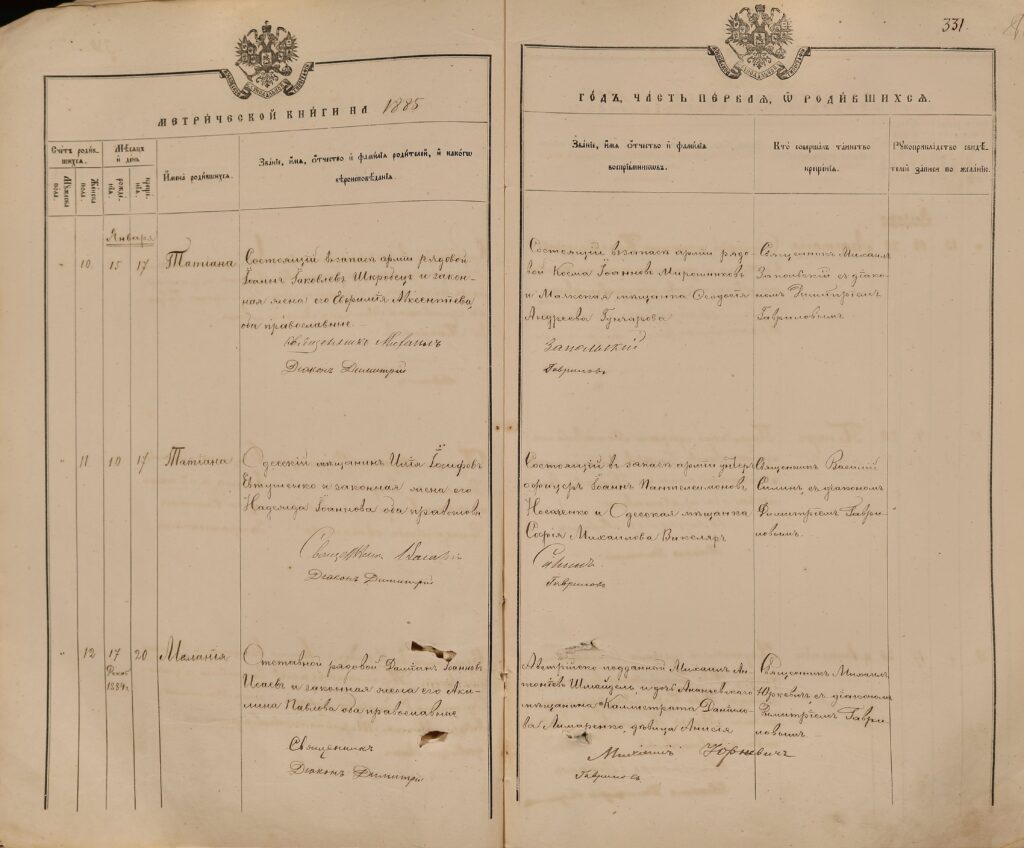 331.
МЕТРИЧЕСКОЙ КНИГИ НА 1885
ГОДЪ, ЧАСТЬ ПЕРВАЯ, Ѡ РОДИВШИХСЯ.
Счетъ родив-
шихся.
Мужеска
пола.
Женска
пола.
Мѣсяцъ
и день
рожде-
нія.
креще-
нія.
Имена родившихся.
Званіе, имя, отчество и фамилія родителей, и какого
вѣроисповѣданія.
Званіе, имя, отчество и фамилія
воспріемниковъ.
Кто совершалъ таинство
крещенія.
Рукоприкладство свидѣ-
телей записи по желанію.
Января
10 15 17 Татіана
Состоящій въ запасѣ арміи рядовой
Іоаннъ Яковлевъ Шкробецъ и закон-
ная жена его Евфимія Авксентіева,
оба православные.
Священникъ Михаилъ
Діаконъ Димитрій
Состоящій въ запасѣ арміи рядо-
вой Косма Іоанновъ Мирошниковъ
и Маякская мѣщанка Ѳеодосія
Андреева Гунчарова
Запольскій
Гавриловъ
Священникъ Михаилъ
Запольскій съ діако-
номъ Димитріемъ
Гавриловымъ
11 10 17 Татіана
Одесскій мѣщанинъ Илія Іосифовъ
Евтушенко и законная жена его
Надежда Іоаннова оба православн
Священникъ Василій
Діаконъ Димитрій
Состоящій въ запасѣ арміи унтеръ
офицеръ Іоаннъ Пантелеимоновъ
Носаченко и Одесская мѣщанка
Софія Михаилова Виксляръ
Силинъ
Гавриловъ
Священникъ Василій
Силинъ, съ діакономъ
Димитріемъ Гаври-
ловымъ.
12 17 20 Меланія
Декаб
1884 г.
Отставной рядовой Даміанъ Іоанновъ
Исаевъ и законная жена его Аки-
лина Павлова оба православные
Священникъ
Діаконъ Димитрій
Австрійско подданной Михаилъ Ан-
тоніевъ Шмайдель, и дочь Ананьевскаго
мѣщанина Каллистрата Данило-
ва Лимаренко, дѣвица Анисія
Михаилъ Юркевичъ
Гавриловъ
Священникъ Михаилъ
Юркевичъ съ діакономъ
Димитріемъ Гаври-
ловымъ